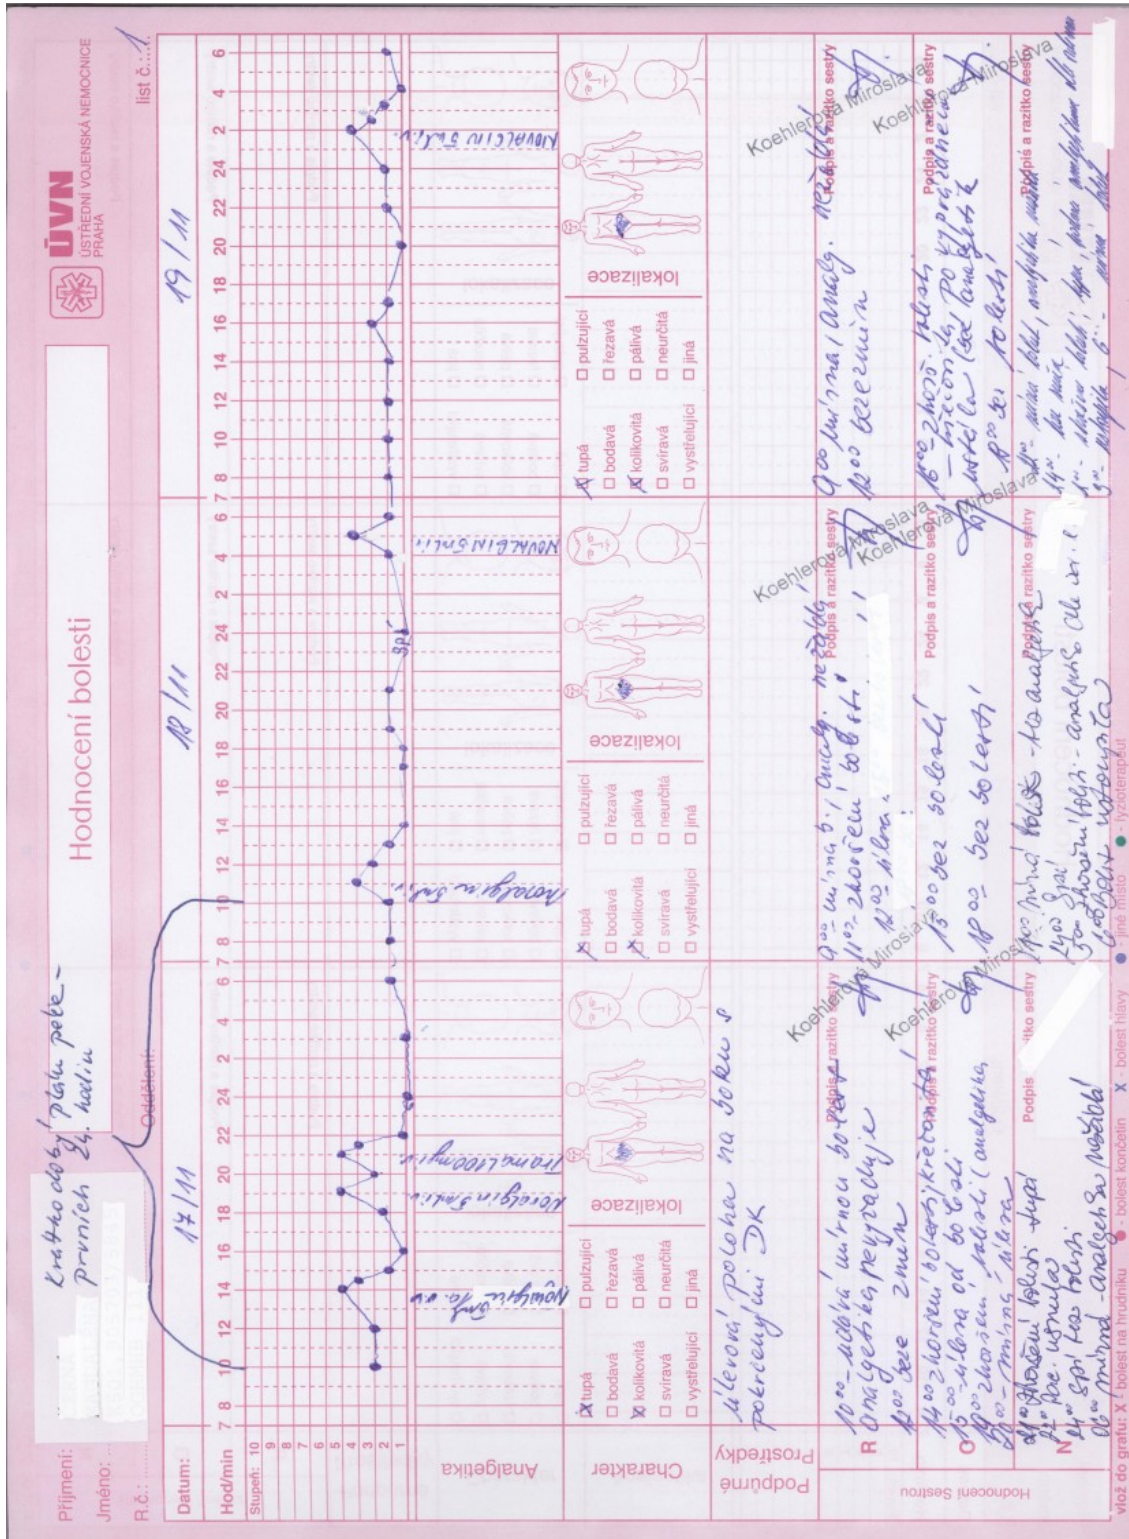 Krátkodobý plán péče -
prvních 24. hodin
Příjmení:
Jméno:
R.č.:
Oddělení:
Hodnocení bolesti
ÚVN
ÚSTŘEDNÍ VOJENSKÁ NEMOCNICE
PRAHA
list č.: 1
Datum: 17/11 18/11 19/11
Hod/min 7 8 10 12 14 16 18 20 22 24 2 4 6 7 8 10 12 14 16 18 20 22 24 2 4 6 7 8 10 12 14 16 18 20 22 24 2 4 6
Stupeň: 10
9
8
7
6
5
4
3
2
1
spí
Analgetika
Novalgin 5ml i.v
Tramal 100mg i.v
Novalgin 5ml i.v
NOVALGIN 5ml i.v
NOVALGIN 5ml i.v.
Charakter
tupá
bodavá
kolikovitá
svíravá
vystřelující
pulzující
řezavá
pálivá
neurčitá
jiná
lokalizace
tupá
bodavá
kolikovitá
svíravá
vystřelující
pulzující
řezavá
pálivá
neurčitá
jiná
lokalizace
tupá
bodavá
kolikovitá
svíravá
vystřelující
pulzující
řezavá
pálivá
neurčitá
jiná
lokalizace
Podpůrné
Prostředky
úlevová poloha na boku s
pokrčenými DK
Hodnocení Sestrou
R
1000 - udává mírnou bolest
analgetika nevyžaduje
1200 beze změn
Podpis a razítko sestry
Koehlerová Miroslava
900 - mírná b., analg. nežádá
1100 - zhoršení bolesti
1200 - úleva
Podpis a razítko sestry
Koehlerová Miroslava
900 mírná, analg. nežádá
1200 beze změn
Podpis a razítko sestry
Koehlerová Miroslava
O
14 00 zhoršení bolesti, křečovitá
15 00 - úleva od bolesti
19 00 zhoršení bolesti (analgetika)
20 00 - mírná úleva
Podpis a razítko sestry
Koehlerová Miroslava
15 00 bez bolesti
18 00 bez bolesti
Podpis a razítko sestry
Koehlerová Miroslava
16 00 - zhorš. bolesti
- křečovitá, po vyprázdnění
ustála (bez analgetik)
18 00 bez bolesti
Podpis a razítko sestry
Koehlerová Miroslava
N
21 00 zhoršení bolesti tupá
22 00 pac. usnula
24 00 spí bez bolesti
06 00 mírná - analgetika nežádá
Podpis
sestry
mírná bolest - bez analgetik
24 00 Spí
5 00 zhoršení bolesti - analgetika dle
Podpis a razítko sestry
mírná bolest, analgetika
Podpis a razítko sestry
vlož do grafu: X - bolest na hrudníku ● - bolest končetin X - bolest hlavy ● - jiné místo ● - fyzioterapeut